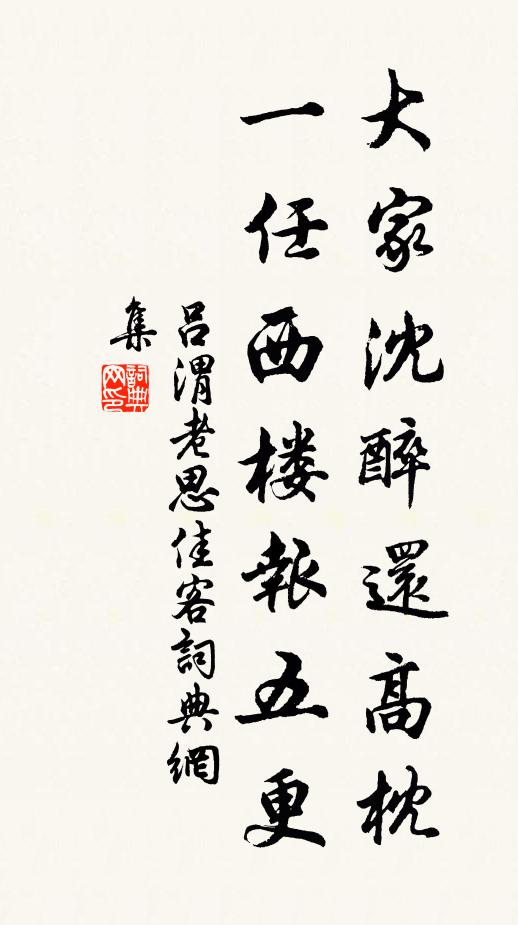 大家沈醉還高枕
一任西楼報五更
吕渭老思佳客詞典網
集
詞典
网印